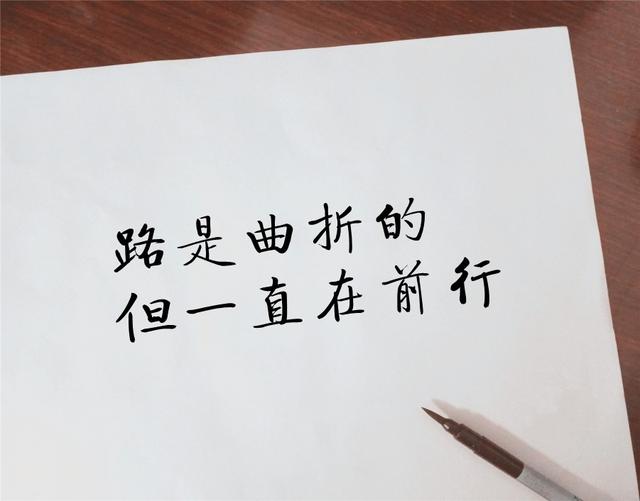 路是曲折的
但一直在前行